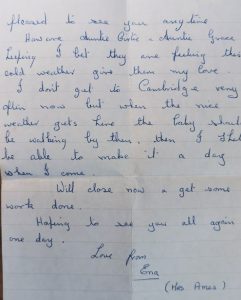 pleased to see you any time
How are Auntie Gertie & Auntie Grace
keeping I bet they are feeling this
cold weather give them my love.
I don't get to Cambridge very
often now but when the nice
weather gets here the baby should
be walking by then, then I shall
be able to make it a day
when I come.
Will close now & get some
work done.
Hoping to see you all again
one day.
Love from
Ena
(Mrs Ames)